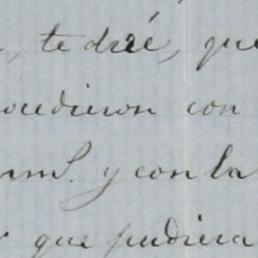 , te diré, que
ocedieron con
y con la
que pudiera